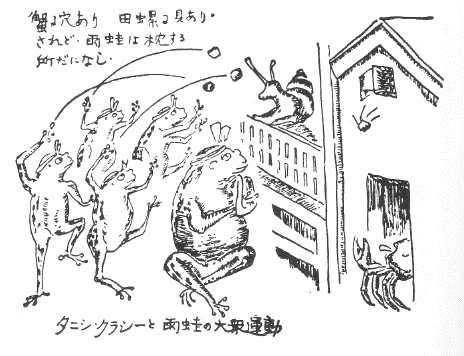 蟹に穴あり　田螺に貝あり。
されど、雨蛙は枕する
所だになし。
タニシ・クラシーと雨蛙の大衆運動